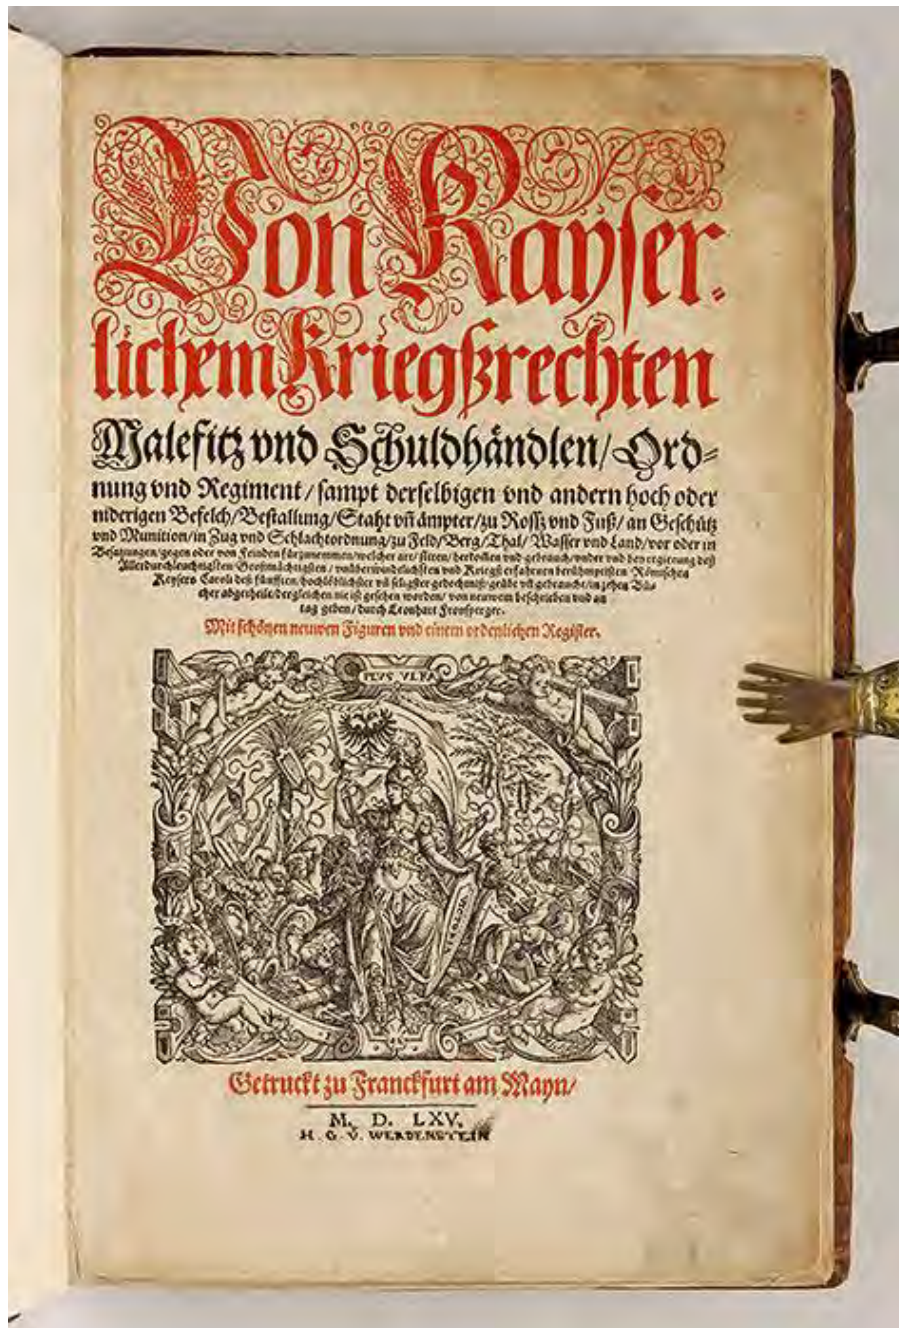 Von Kayser⸗
lichem Kriegßrechten
Malefitz vnd Schuldhändlen/ Ord⸗
nung vnd Regiment/ sampt derselbigen vnd andern hoch oder
niderigen Befelch/ Bestallung/ Staht vñ ämpter/ zu Rossz vnd Fuß/ an Geschütz
vnd Munition/ in Zug vnd Schlachtordnung/ zu Feld/ Berg/ Thal/ Wasser vnd Land/ vor oder in
Besatzungen/ gegen oder von Feinden fürzunemmen/ welcher art/ sitten/ herkommen vnd gebrauch/ vnder vnd bey regierung deß
Allerdurchleuchtigsten Großmächtigsten/ vnüberwindtlichsten vnd Kriegß erfahrnen berühmptsten Römischen
Keysers Caroli deß fünfften/ hochlöblichster vñ seligster gedechtnuß/ geübt vñ gebraucht/ in zehen Bü⸗
cher abgetheilt/ dergleichen nie ist gesehen worden/ von neuwem beschrieben vnd an
tag geben/ durch Leonhart Fronsperger.
Mit schönen neuwen Figuren vnd einem ordenlichen Register.
PLVS VLTRA
Getruckt zu Franckfurt am Mayn/
M. D. LXV.
H. G. V. WERDENSTEIN